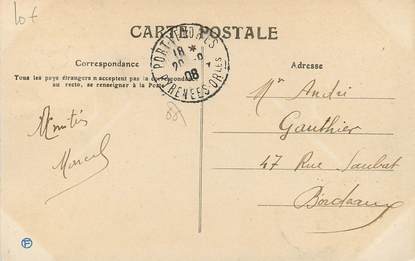 10f
CARTE POSTALE
Correspondance
Tous les pays étrangers n'acceptent pas la correspondance
au recto, se renseigner à la Poste
PORT-VENDRES
18 *
08
PYRENEES-ORles
Adresse
Mr André
Gauthier
47 Rue Saubat
Bordeaux
Amitiés
Marcel